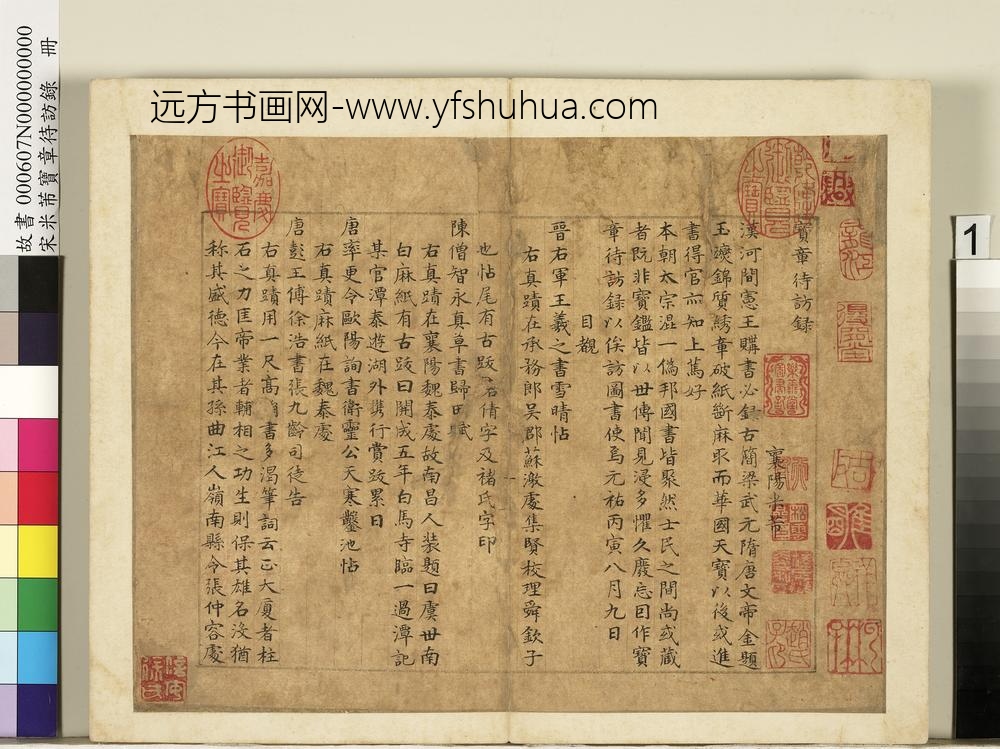 故書000607N000000000
宋米芾寶章待訪錄 冊
远方书画网-www.yfshuhua.com
1
寶章待訪録
襄陽米芾
漢河間憲王購書必録古簡梁武元隋唐文帝金題
玉躞錦質綉章破紙斷麻取而華國天寶以後或進
書得官而知上篤好
本朝太宗混一僞邦國書皆聚然士民之間尚或藏
者既非寶鑑皆以世傳聞見浸多懼久廢忘因作寶
章待訪録以俟訪圖書使焉元祐丙寅八月九日
目覩
晉右軍王羲之書雪晴帖
右真蹟在承務郎吳郡蘇激處集賢校理舜欽子
也帖尾有古跋 倩字及褚氏字印
陳僧智永真草書歸田賦
右真蹟在襄陽魏泰處故南昌人裝題曰虞世南
白麻紙有古跋曰開成五年白馬寺臨一過潭記
某官潭泰遊湖外携行賞跋累日
唐率更令歐陽詢書衛靈公天寒鑿池帖
右真蹟麻紙在魏泰處
唐彭王傅徐浩書張九齡司徒告
右真蹟用一尺高 書多渴筆詞云正大厦者柱
石之力匡帝業者輔相之功生則保其雄名沒猶
称其盛德今在其孫曲江人嶺南縣令張仲容處
嘉慶御覽之寶
乾隆御覽之寶